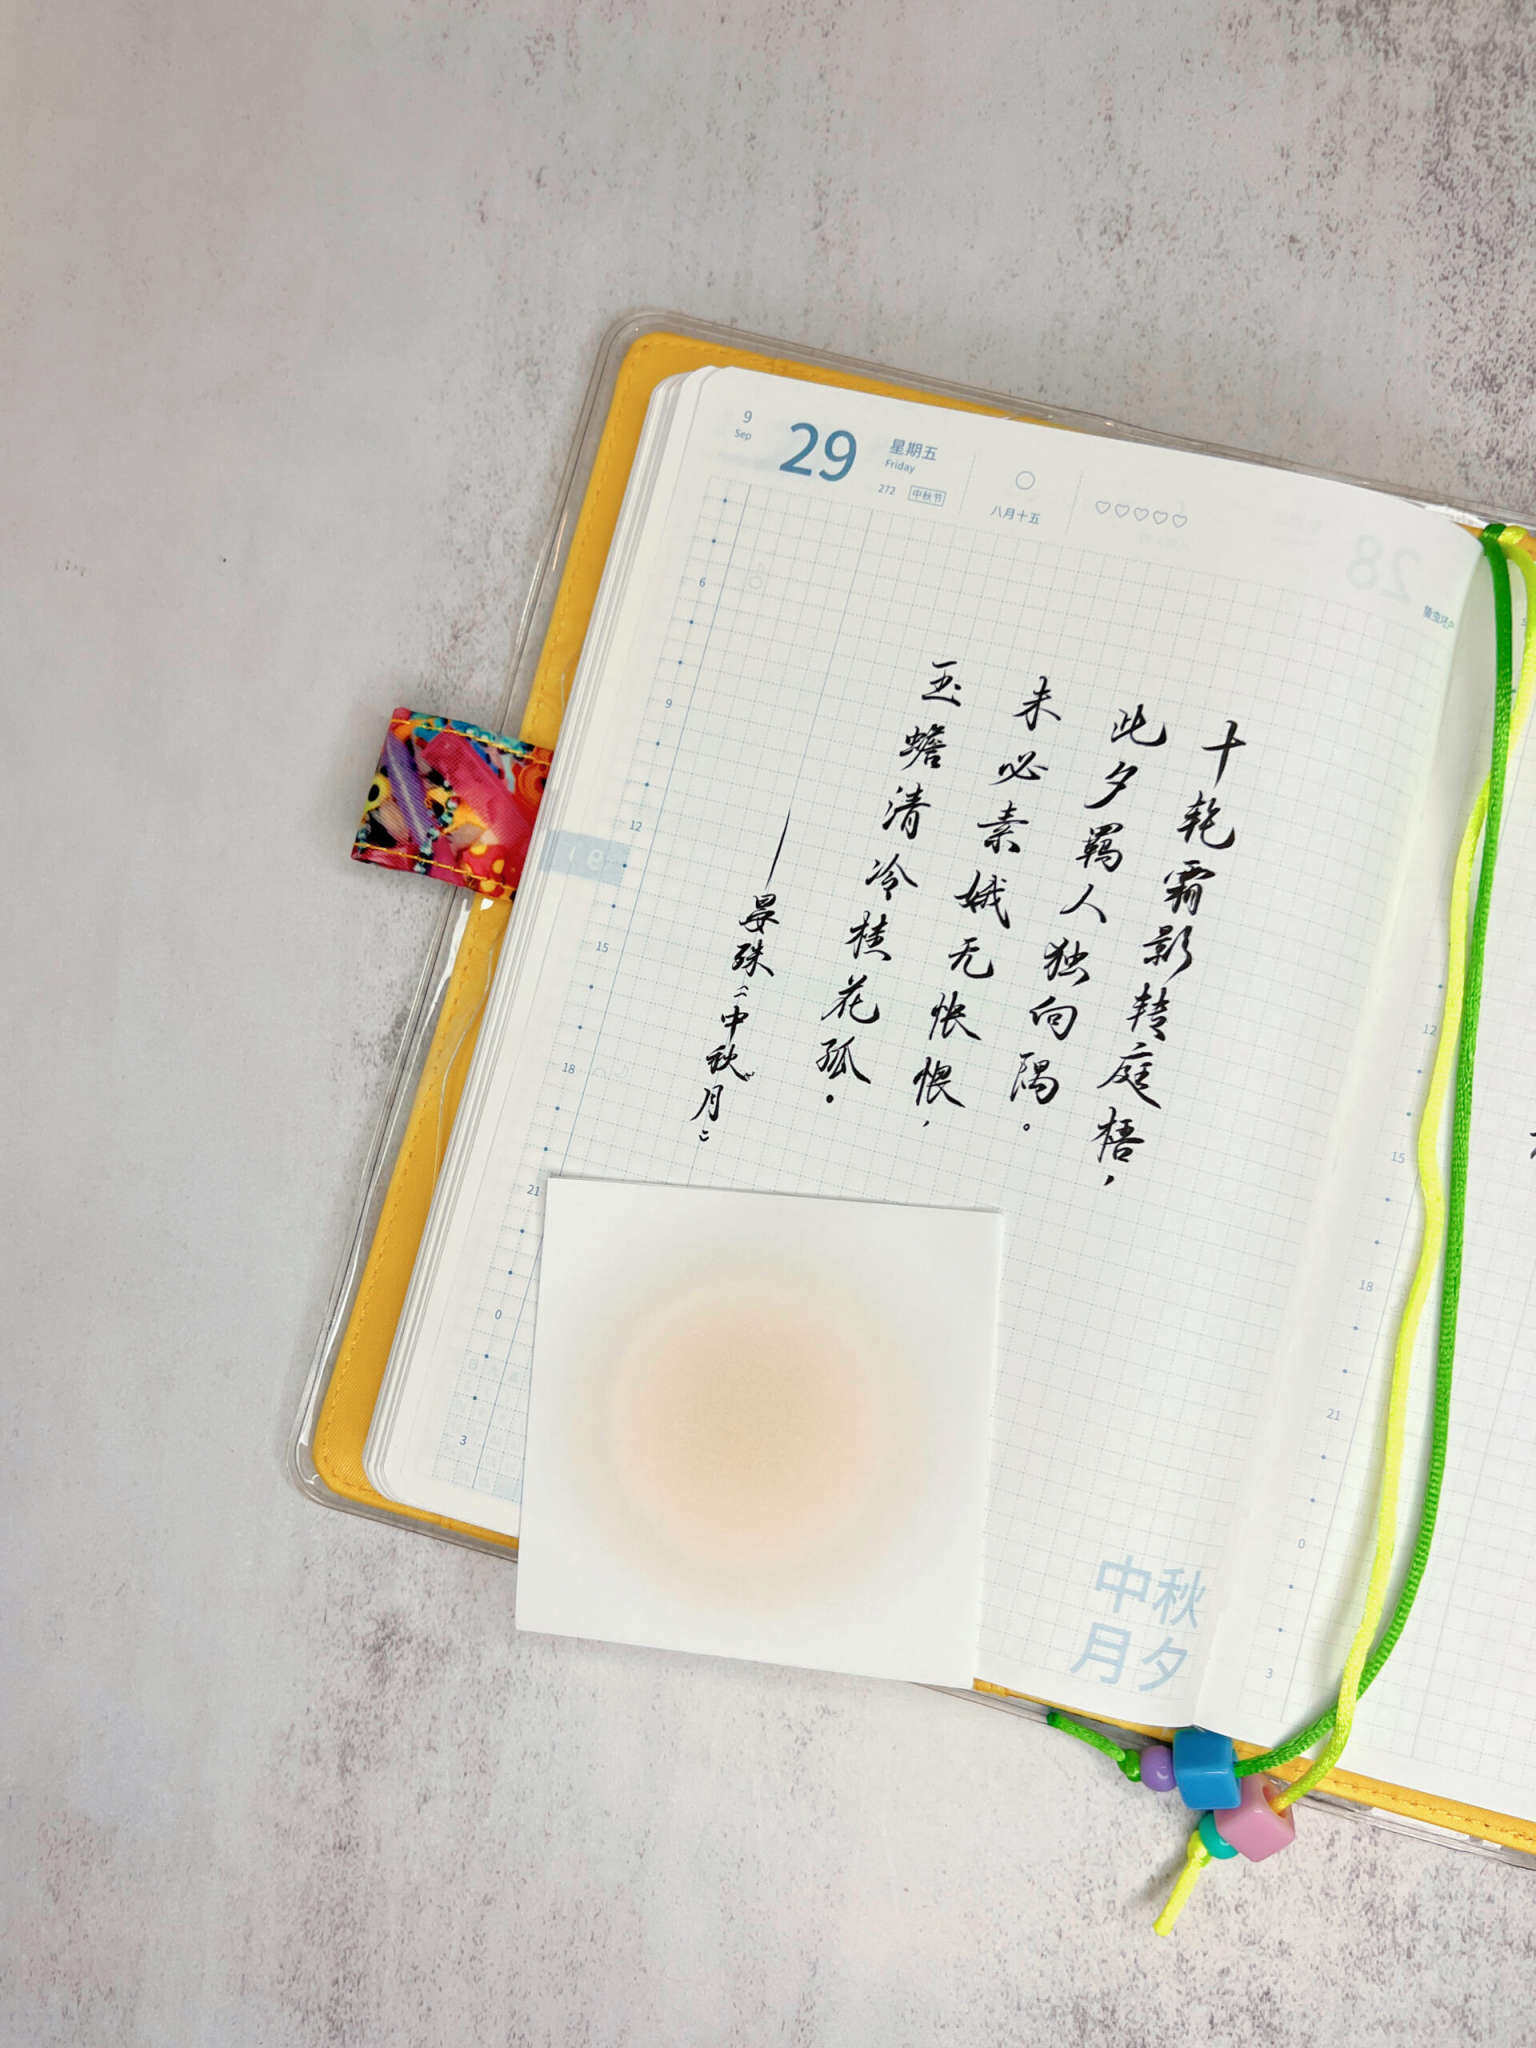 9
Sep
29
星期五
Friday
272 中秋节
八月十五
6
9
12
15
18
21
0
3
十轮霜影转庭梧，
此夕羁人独向隅。
未必素娥无怅恨，
玉蟾清冷桂花孤。
——晏殊《中秋月》
中秋
月夕
12
15
18
21
0
3